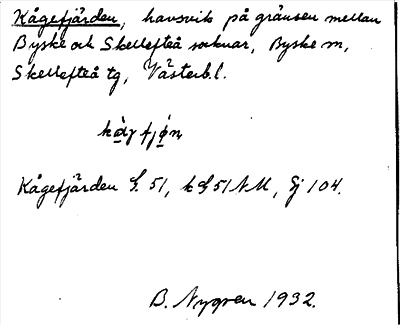 Kågefjärden, havsvik på gränsen mellan
Byske och Skellefteå socknar, Byske m,
Skellefteå tg, Västerb.l.
Kågefjärden G. 51, k G 51 NM, Gj 104.
B. Nygren 1932.